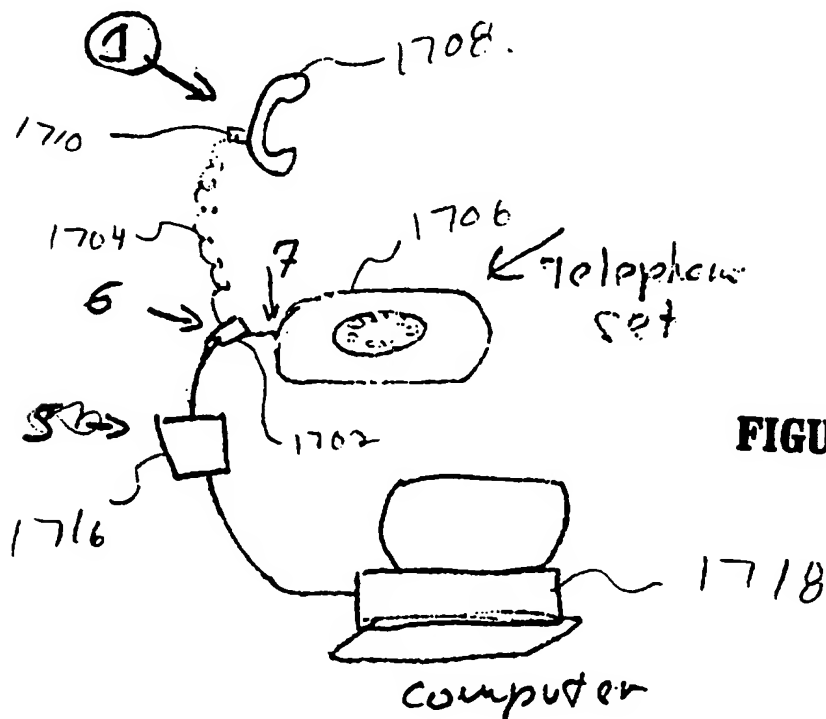 1
1708.
1710
1704
1706
7
Telephone
set
6
1702
FIGU
1716
1718
computer